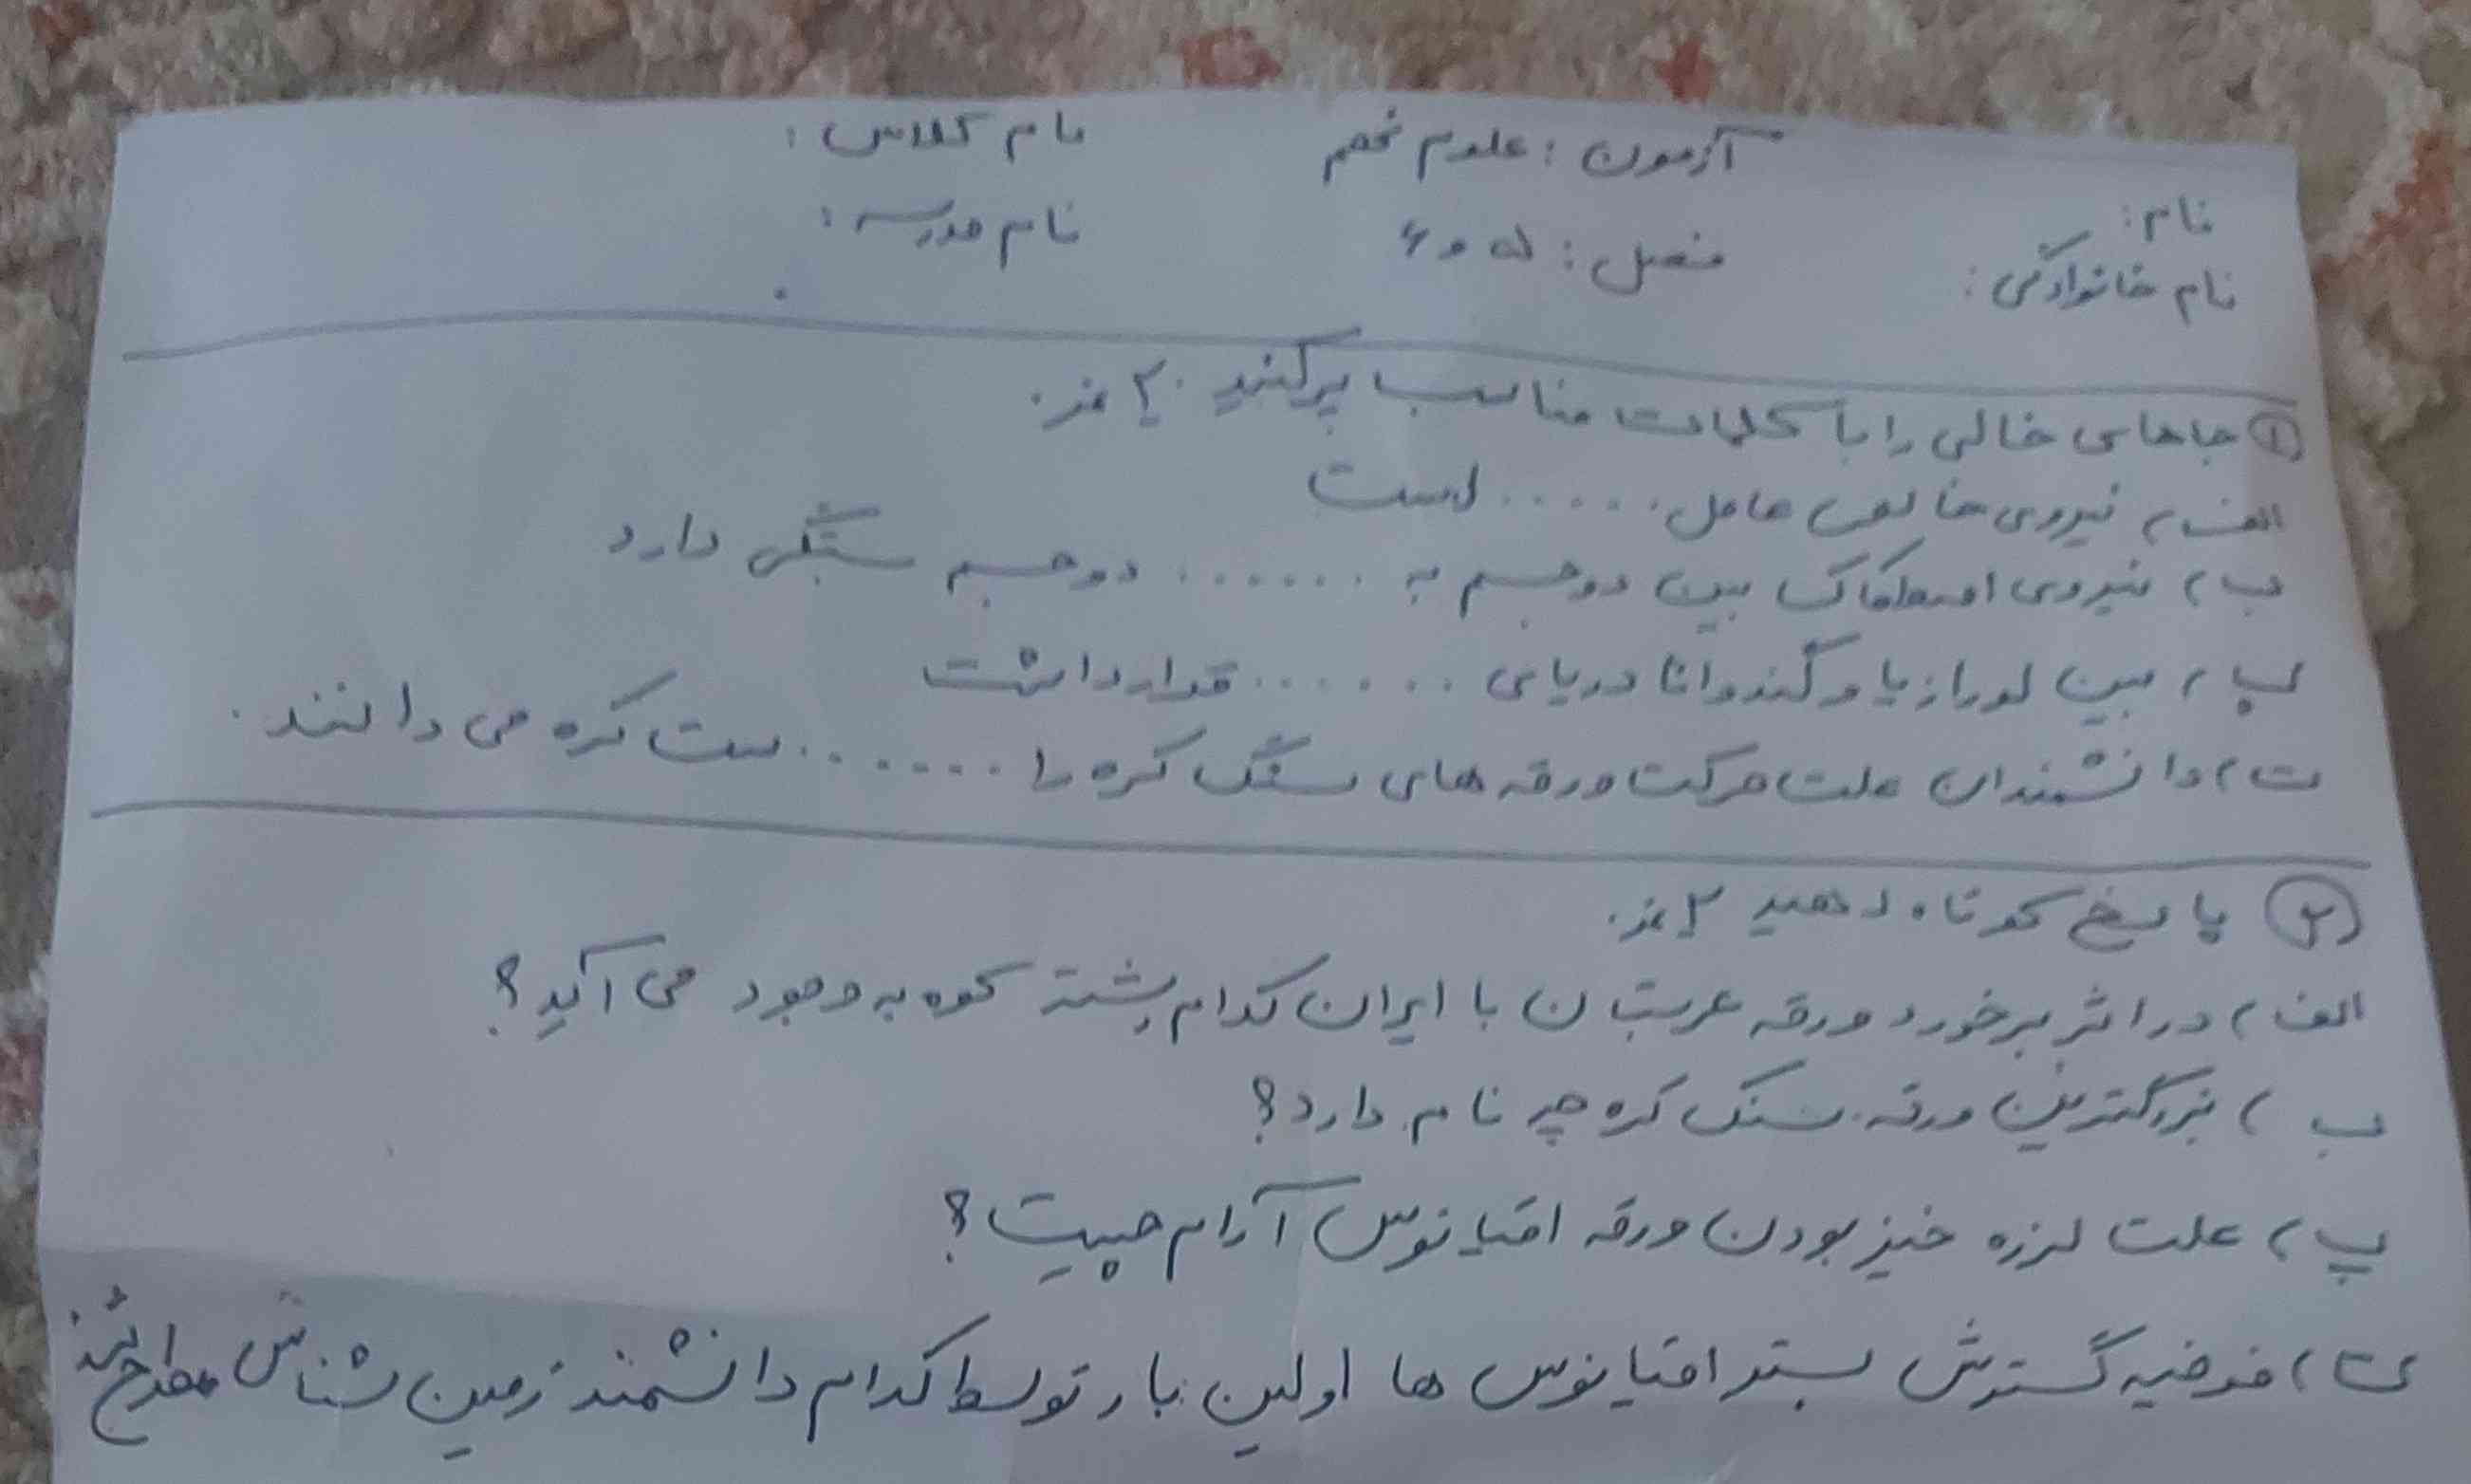 آزمون : علوم نهم
نام کلاس :
نام :
فصل : ۵ و ۶
نام مدرسه :
نام خانوادگی :
① جاهای خالی را با کلمات مناسب پر کنید . ۲ نمر.
الف ) نیروی خالص عامل ..... است
ب ) نیروی اصطکاک بین دو جسم به ...... دو جسم بستگی دارد
پ ) بین لورازیا و گندوانا دریای ...... قرار داشت
ت ) دانشمندان علت حرکت ورقه های سنگ کره را ...... ست کره می دانند .
② پاسخ کوتاه دهید ۲ نمر.
الف ) در اثر برخورد ورقه عربستان با ایران کدام رشته کوه به وجود می آید ؟
ب ) بزرگترین ورقه سنگ کره چه نام دارد ؟
پ ) علت لرزه خیز بودن ورقه اقیانوس آرام چیست ؟
ت ) فرضیه گسترش بستر اقیانوس ها اولین بار توسط کدام دانشمند زمین شناس مطرح شد